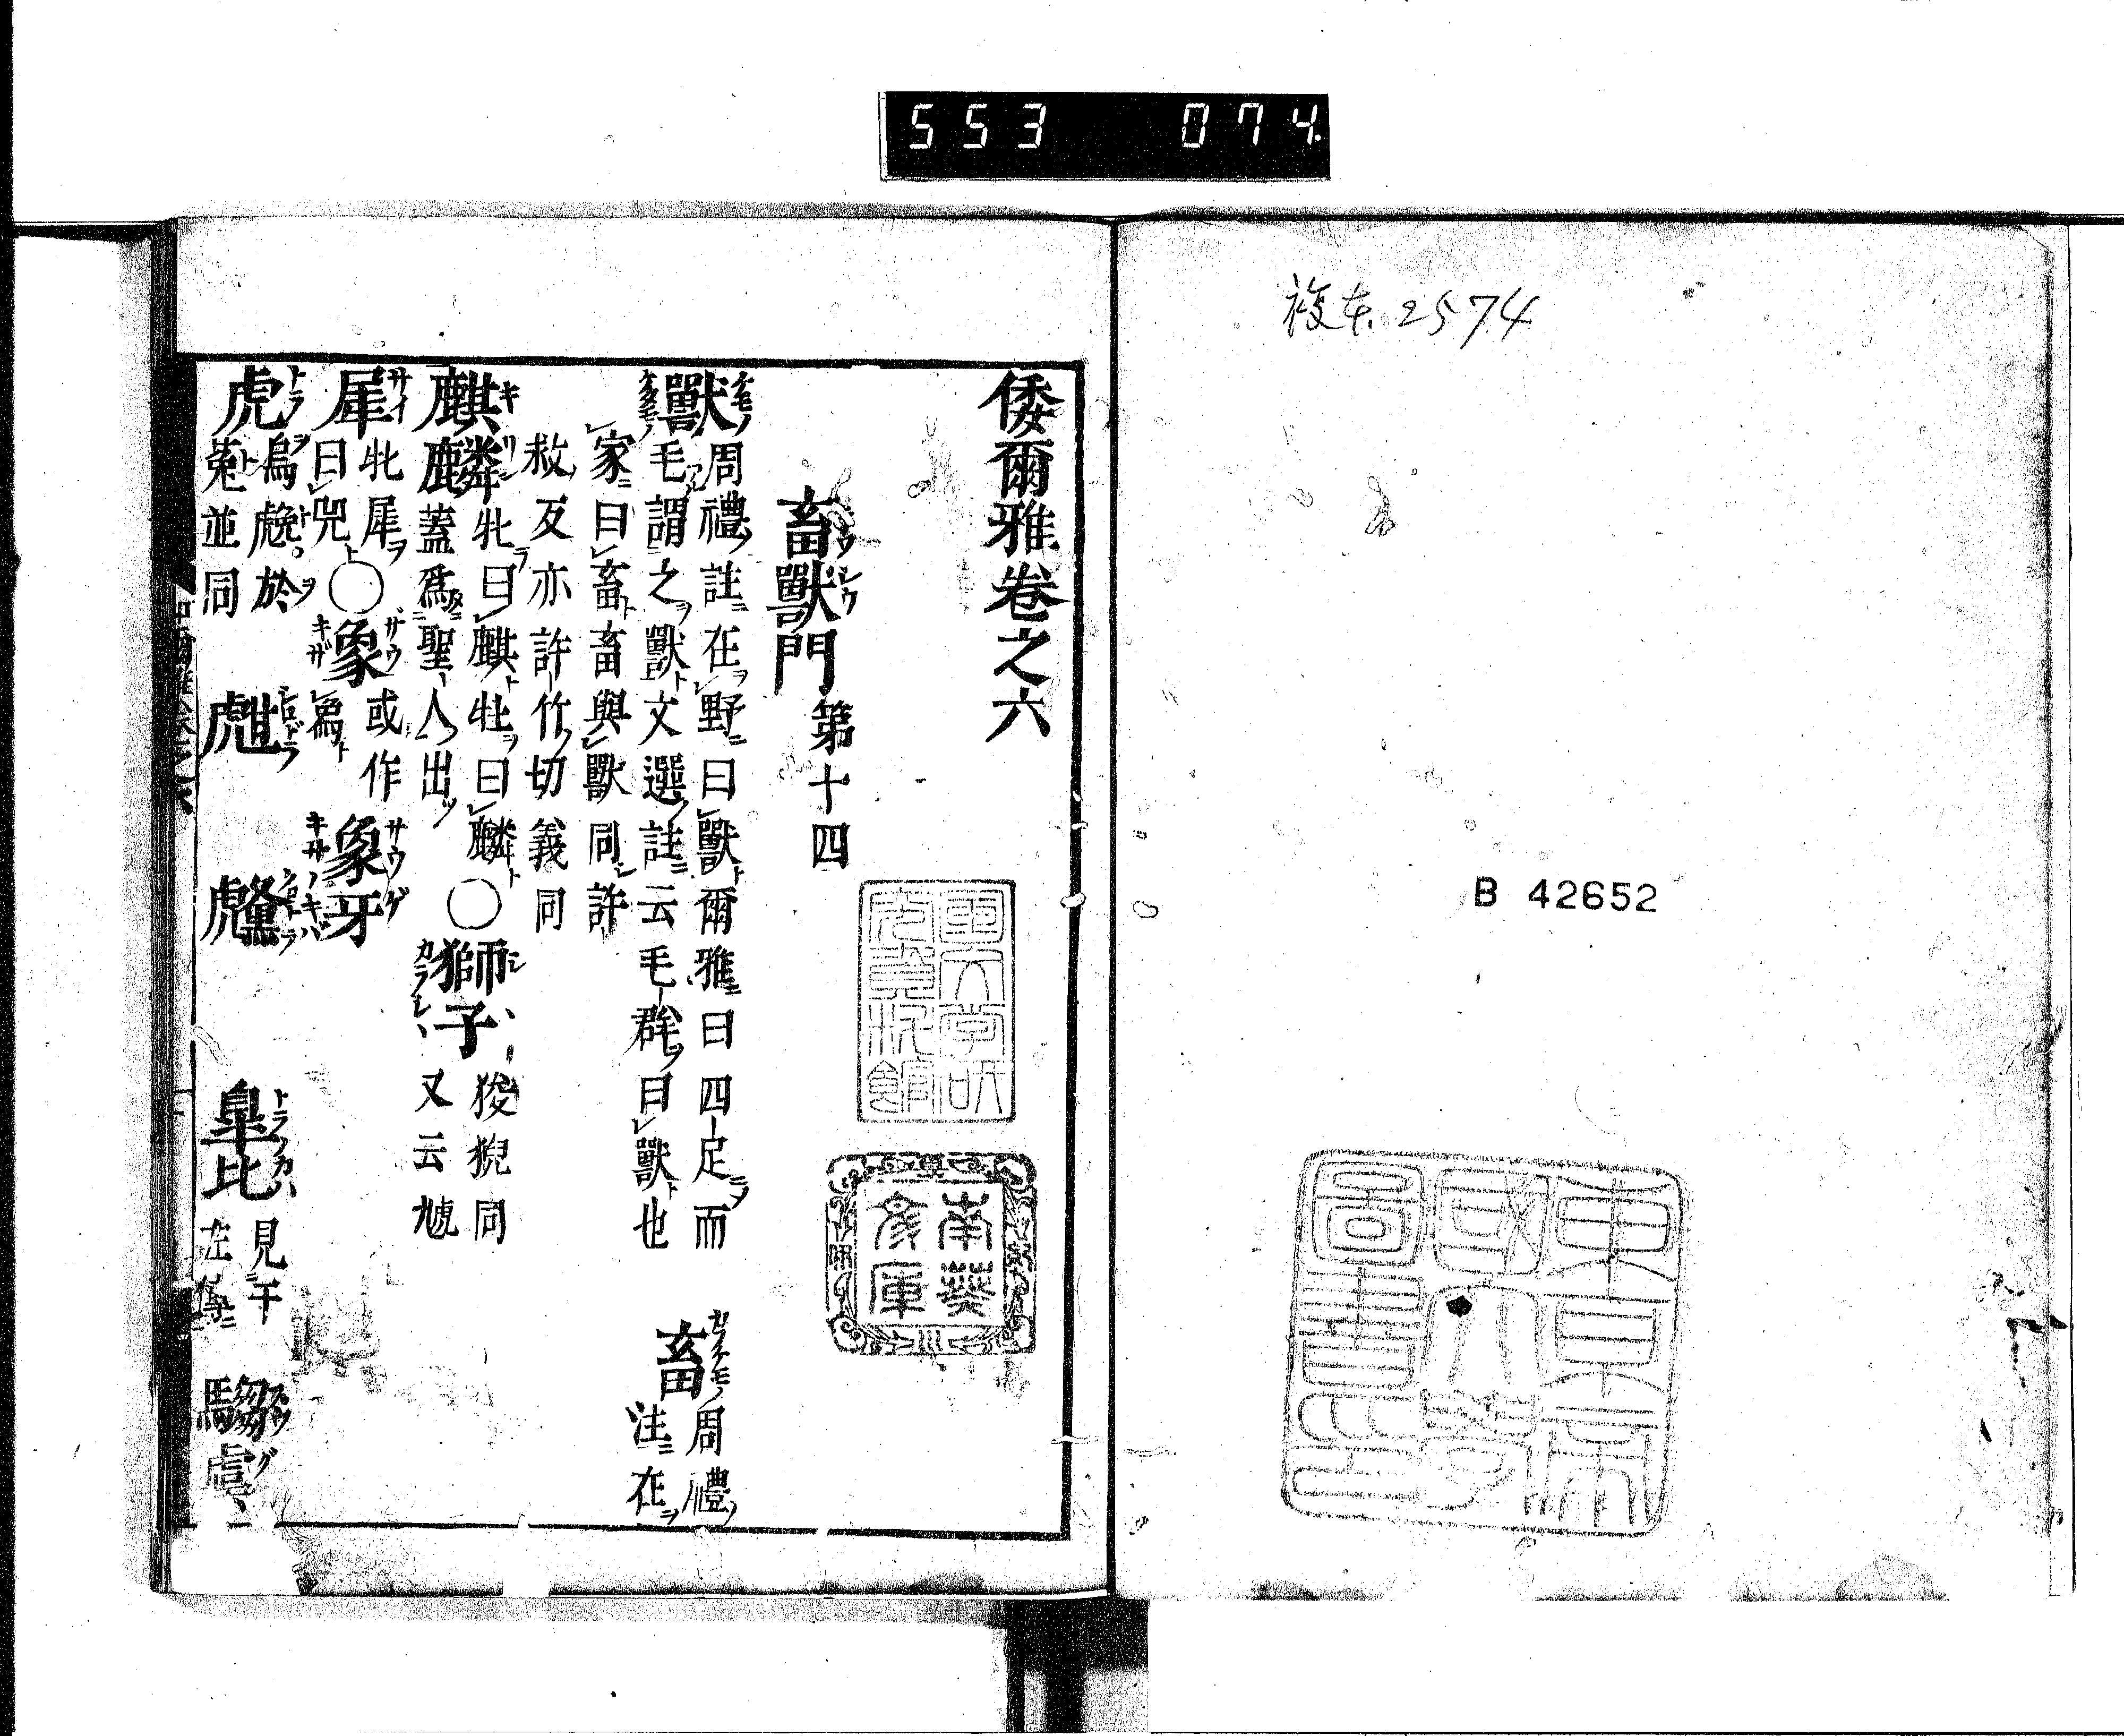 553 074
複本 2574
B 42652
東京帝
國大學
圖書印
倭爾雅卷之六
畜獸門第十四
南葵
文庫
獸 周禮註在野曰獸爾雅曰四足而
毛謂之獸文選註云毛群曰獸也
畜 周禮
注在
家曰畜畜與獸同許
救反亦許竹切義同
麒麟 牝曰麒牡曰麟
蓋爲聖人出
○獅子 狻猊同
又云虓
犀 牝犀
曰兕
○象 或作
爲
象牙
虎 烏䖘於
菟並同
甝
皐比 見
左傳
騶虞